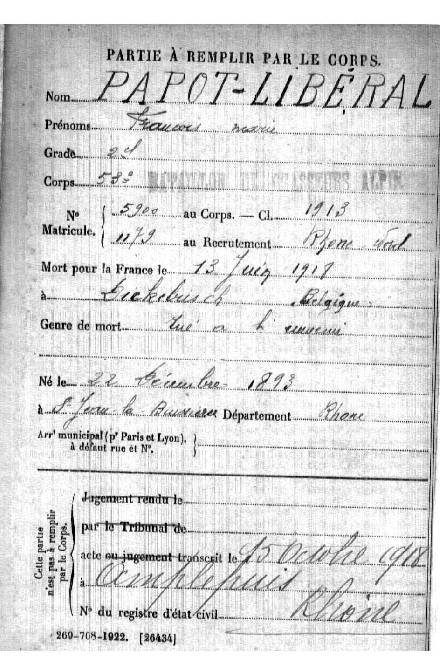 PARTIE À REMPLIR PAR LE CORPS.
Nom PAPOT-LIBÉRAL
Prénoms François marie
Grade 2d
Corps 53e BATAILLON DE CHASSEURS ALPINS
No Matricule. 5900 au Corps. — Cl. 1913
1179 au Recrutement Rhône
Mort pour la France le 13 Juin 1918
à Dickebusch Belgique
Genre de mort tué à l'ennemi
Né le 22 Décembre 1893
à St Jean la Bussière Département Rhone
Arrt municipal (pr Paris et Lyon),
à défaut rue et No.
Cette partie
n'est pas à remplir
par le Corps.
Jugement rendu le
par le Tribunal de
acte ou jugement transcrit le 15 Octobre 1918
à Amplepuis
No du registre d'état civil Rhône
269-708-1922. [26434]